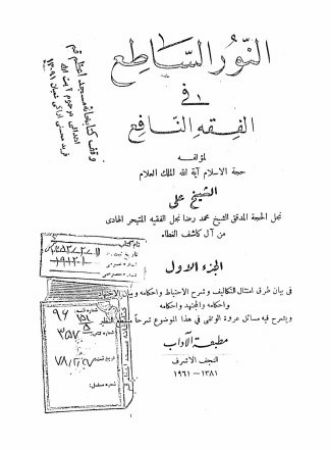 النور الساطع
في
الفقه النافع
لمؤلفه
حجة الاسلام آية الله الملك العلام
الشيخ علي
نجل الحجة المدقق الشيخ محمد رضا نجل الفقيه المتبحر الهادي
من آل كاشف الغطاء
الجزء الاول
في بيان طرق امتثال التكاليف وشرح الاحتياط واحكامه وبيان
واحكامه والمجتهد واحكامه
ويشرح فيه مسائل عروة الوثقى في هذا الموضوع شرحاً
مطبعة الآداب
النجف الاشرف
١٣٨١ - ١٩٦١
وقف كتابخانه مسجد اعظم قم